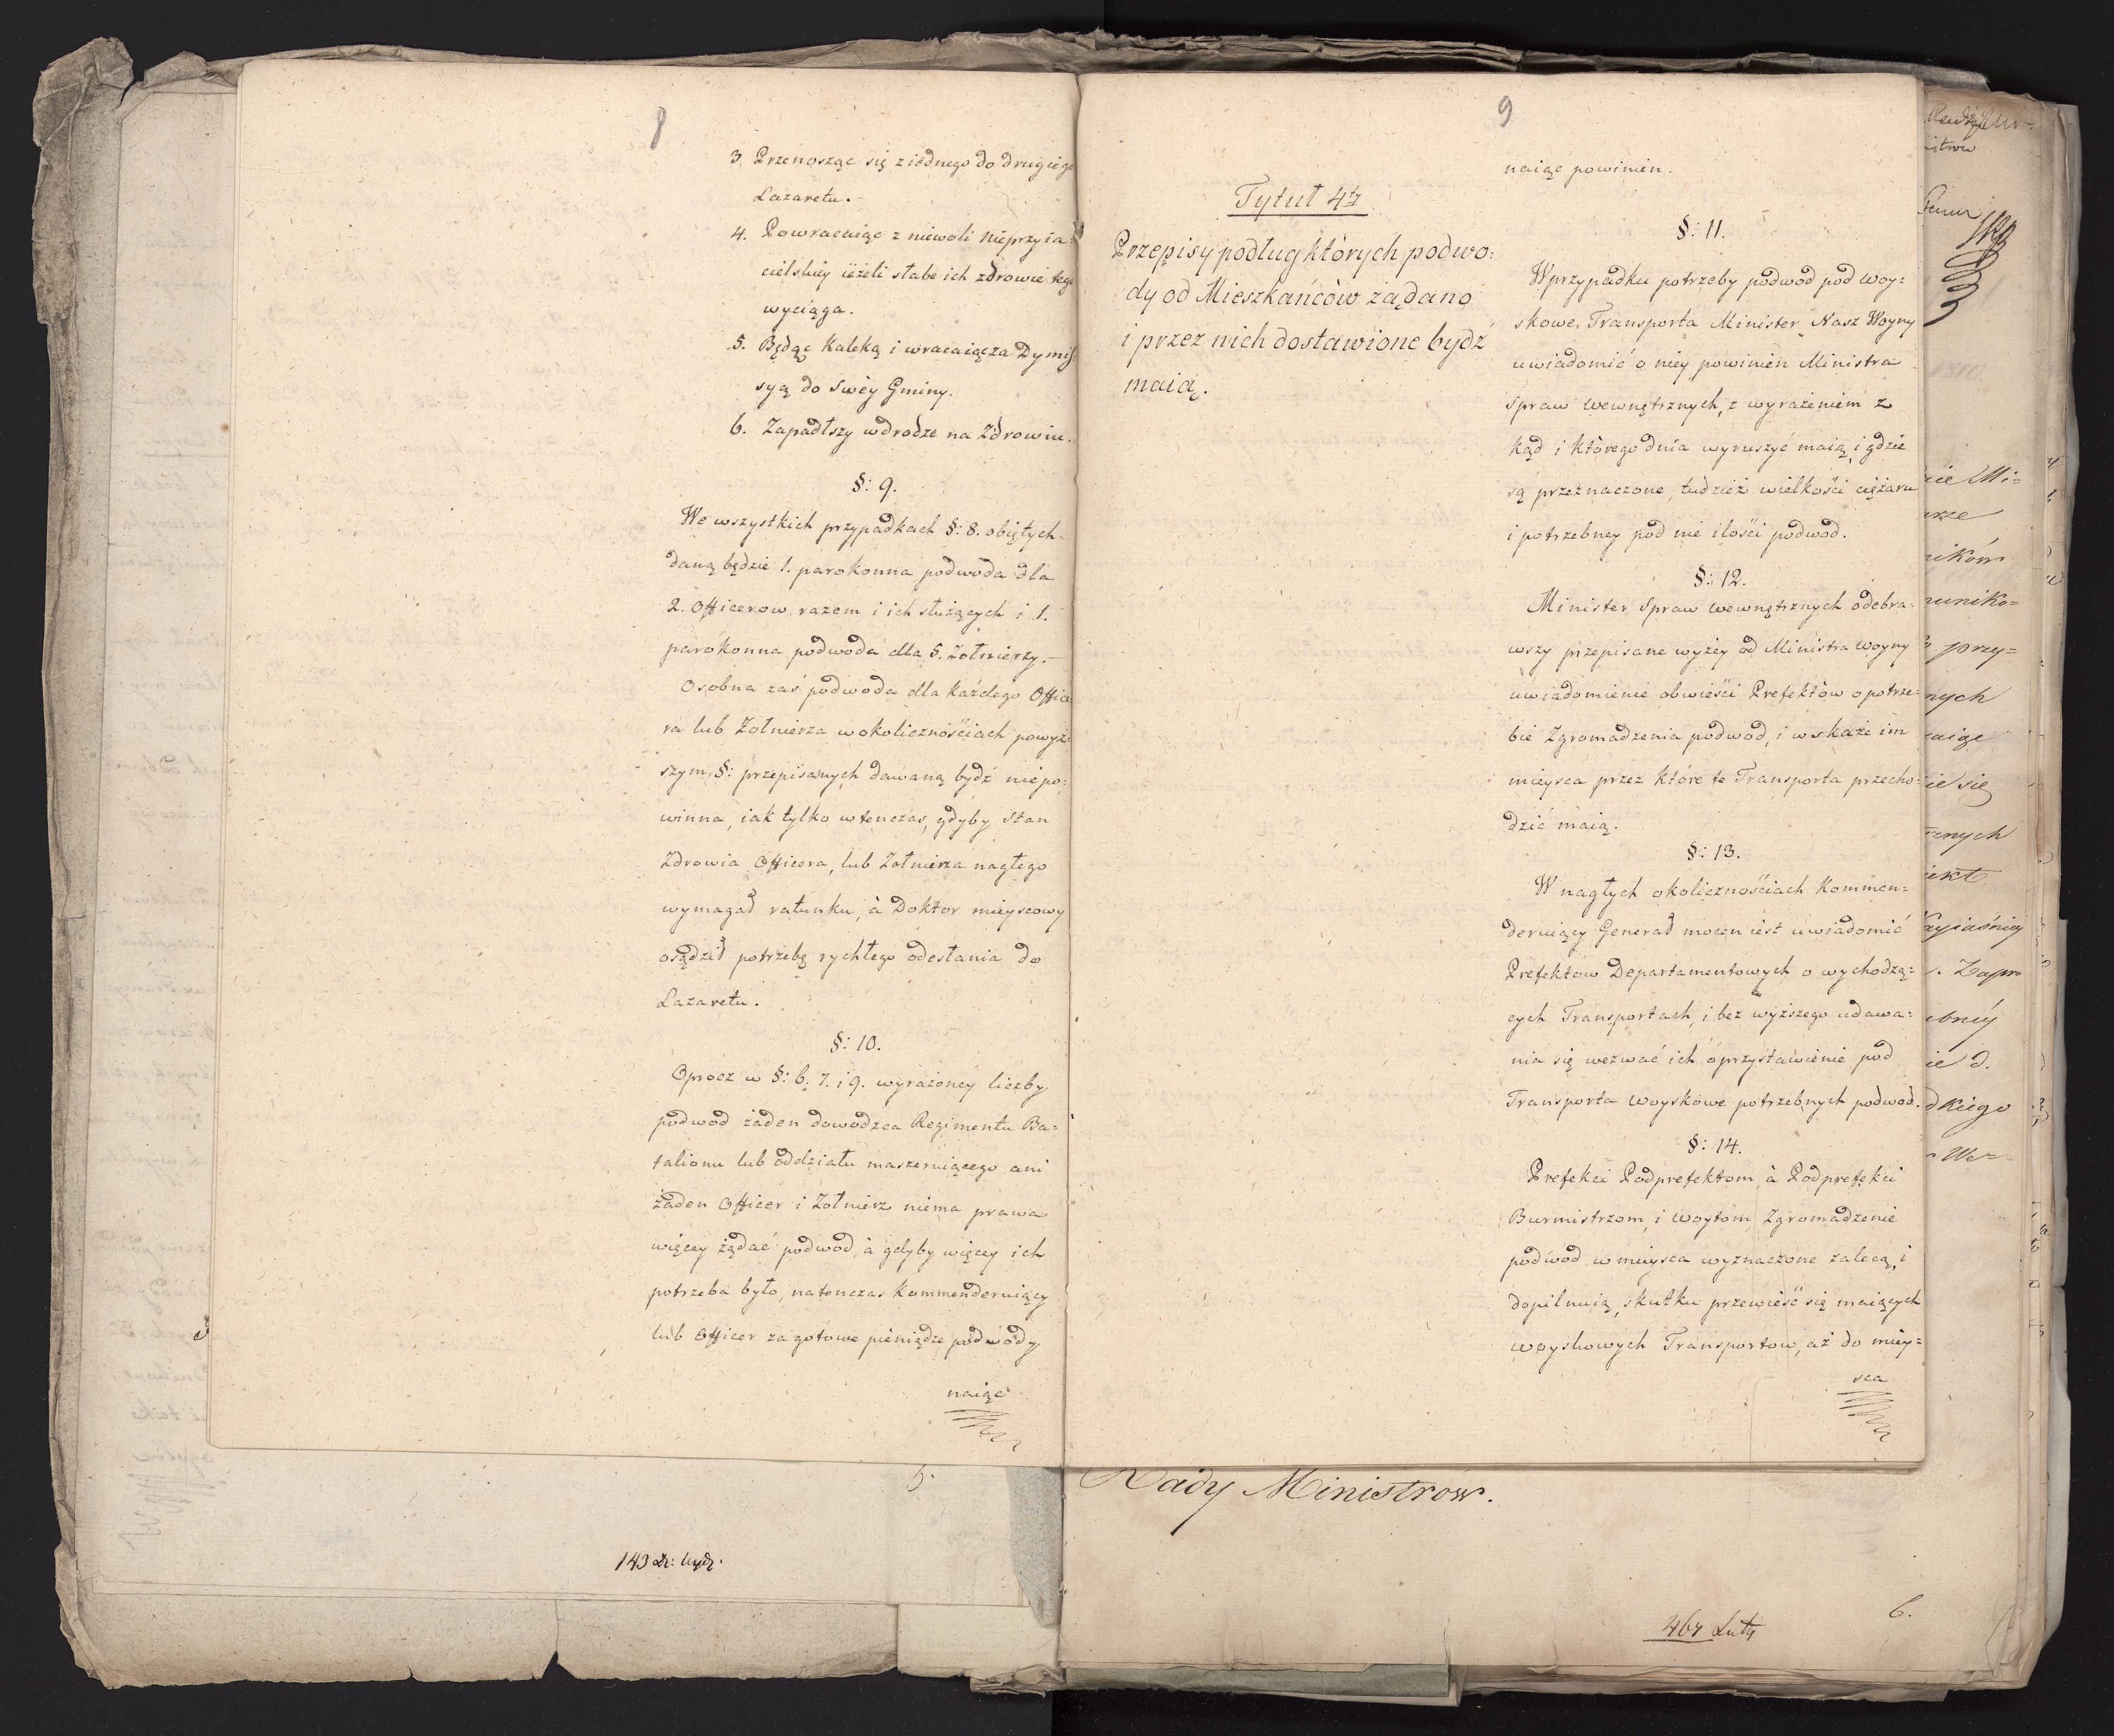 8
3. Przenosząc się z iednego do drugiego
Lazaretu.
4. Powracaiąc z niewoli nieprzyia=
cielskiey ieżeli słabe ich zdrowie tego
wyciąga.
5. Będąc Kaleką i wracaiąc za Dymis
syą do swéy Gminy.
6. Zapadłszy w drodze na Zdrowiu.
§: 9.
We wszystkich przypadkach §: 8. obiętych
daną będzie 1. parokonna podwoda dla
2. Officerow razem i ich służących i 1.
parokonna podwoda dla 5. Żołnierzy.
Osobna zaś podwoda dla każdego Office=
ra lub Żołnierza w okolicznościach powyż=
szym §: przepisanych dawaną bydź niepo=
winna, iak tylko wtenczas, gdyby stan
Zdrowia Officera, lub Żołnierza nagłego
wymagał ratunku, à Doktor mieyscowy
osądził potrzebę rychłego odesłania do
Lazaretu.
§: 10.
Oprocz w §: 6. 7. i 9. wyrażoney liczby
podwod żaden dowodzca Regimentu Ba=
talionu lub oddziału maszeruiącego ani
żaden Officer i Żołnierz niema prawa
więcey żądać podwod, à gdyby więcey ich
potrzeba było, natenczas Kommenderuiący
lub Officer za gotowe pieniądze podwody
naiąć
9
Tytuł 4ty
Przepisy podług których podwo=
dy od Mieszkańców żądano
i przez nich dostawione bydź
maią.
naiąć powinien.
§: 11.
W przypadku potrzeby podwod pod woy=
skowe Transporta Minister Nasz Woyny
uwiadomić o niey powinien Ministra
Spraw wewnętrznych, z wyrażeniem z
kąd i którego dnia wyruszyć maią, i gdzie
są przeznaczone, tudzież wielkości ciężaru
i potrzebney pod nie ilości podwod.
§: 12.
Minister Spraw wewnętrznych odebra=
wszy przepisane wyżéy od Ministra woyny
uwiadomienie obwieści Prefektòw o potrze=
bie Zgromadzenia podwod, i wskaże im
mieysca przez które te Transporta przecho=
dzić maią.
§: 13.
W nagłych okolicznościach Kommen=
deruiący Generał mocen iest uwiadomić
Prefektow Departamentowych o wychodzą=
cych Transportach, i bez wyższego udawa=
nia się wezwać ich o przystawienie pod
Transporta woyskowe potrzebnych podwod.
§: 14.
Prefekci Podprefektom, à Podprefekci
Burmistrzom, i Woytom, Zgromadzenie
podwod w mieysca wyznaczone zalecą, i
dopilnuią, skutku przewieść się maiących
woyskowych Transportow, aż do miey=
sca
Rady Ministrów.
5.
143
6.
467